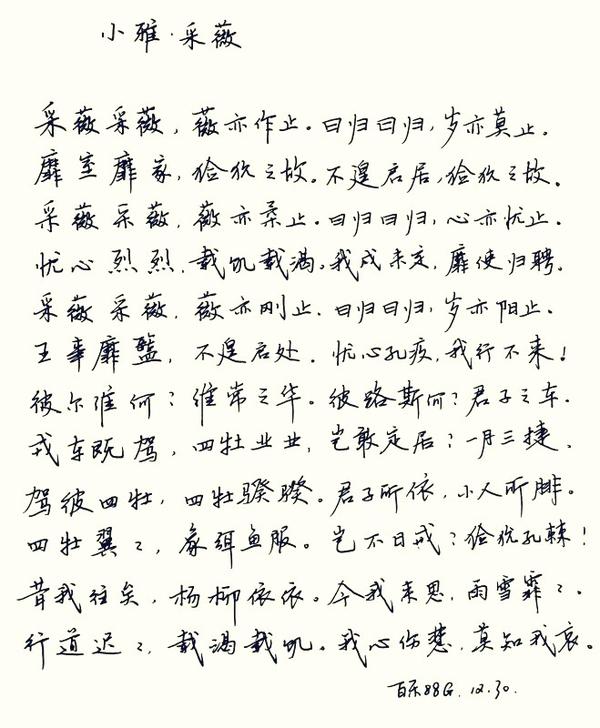 小雅·采薇
采薇采薇,薇亦作止。曰归曰归,岁亦莫止。
靡室靡家,俭狁之故。不遑启居,俭狁之故。
采薇采薇,薇亦柔止。曰归曰归,心亦忧止。
忧心烈烈,载饥载渴。我戍未定,靡使归聘。
采薇采薇,薇亦刚止。曰归曰归,岁亦阳止。
王事靡盬,不遑启处。忧心孔疚,我行不来!
彼尔维何?维常之华。彼路斯何?君子之车。
戎车既驾,四牡业业,岂敢定居?一月三捷。
驾彼四牡,四牡骙骙。君子所依,小人所腓。
四牡翼々,象弭鱼服。岂不日戒?俭狁孔棘!
昔我往矣,杨柳依依。今我来思,雨雪霏々。
行道迟々,载渴载饥。我心伤悲,莫知我哀。
百乐88G.12.30.